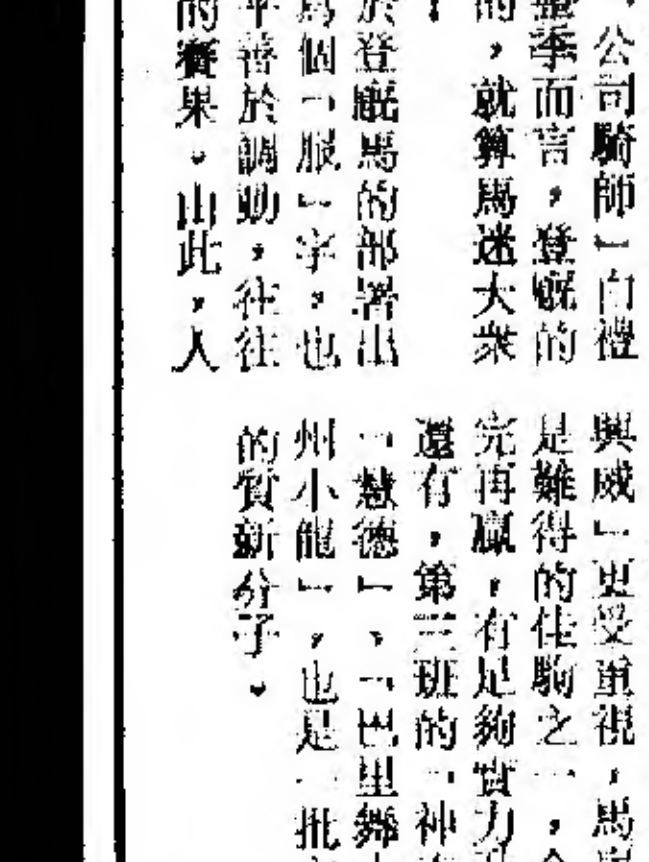 公司騎師」白禮
季而言，登廐的
的，就算馬迷大衆
於登廐馬的部署出
爲個「服」字，也
平善於調動，往往
的賽果。由此，人
興威」更受重視，馬
是難得的佳駒之一，
完再贏，有足夠實力
還有，第三班的「神
「慧德」、「巴里舞
州小龍」，也是一批
的質新分子。